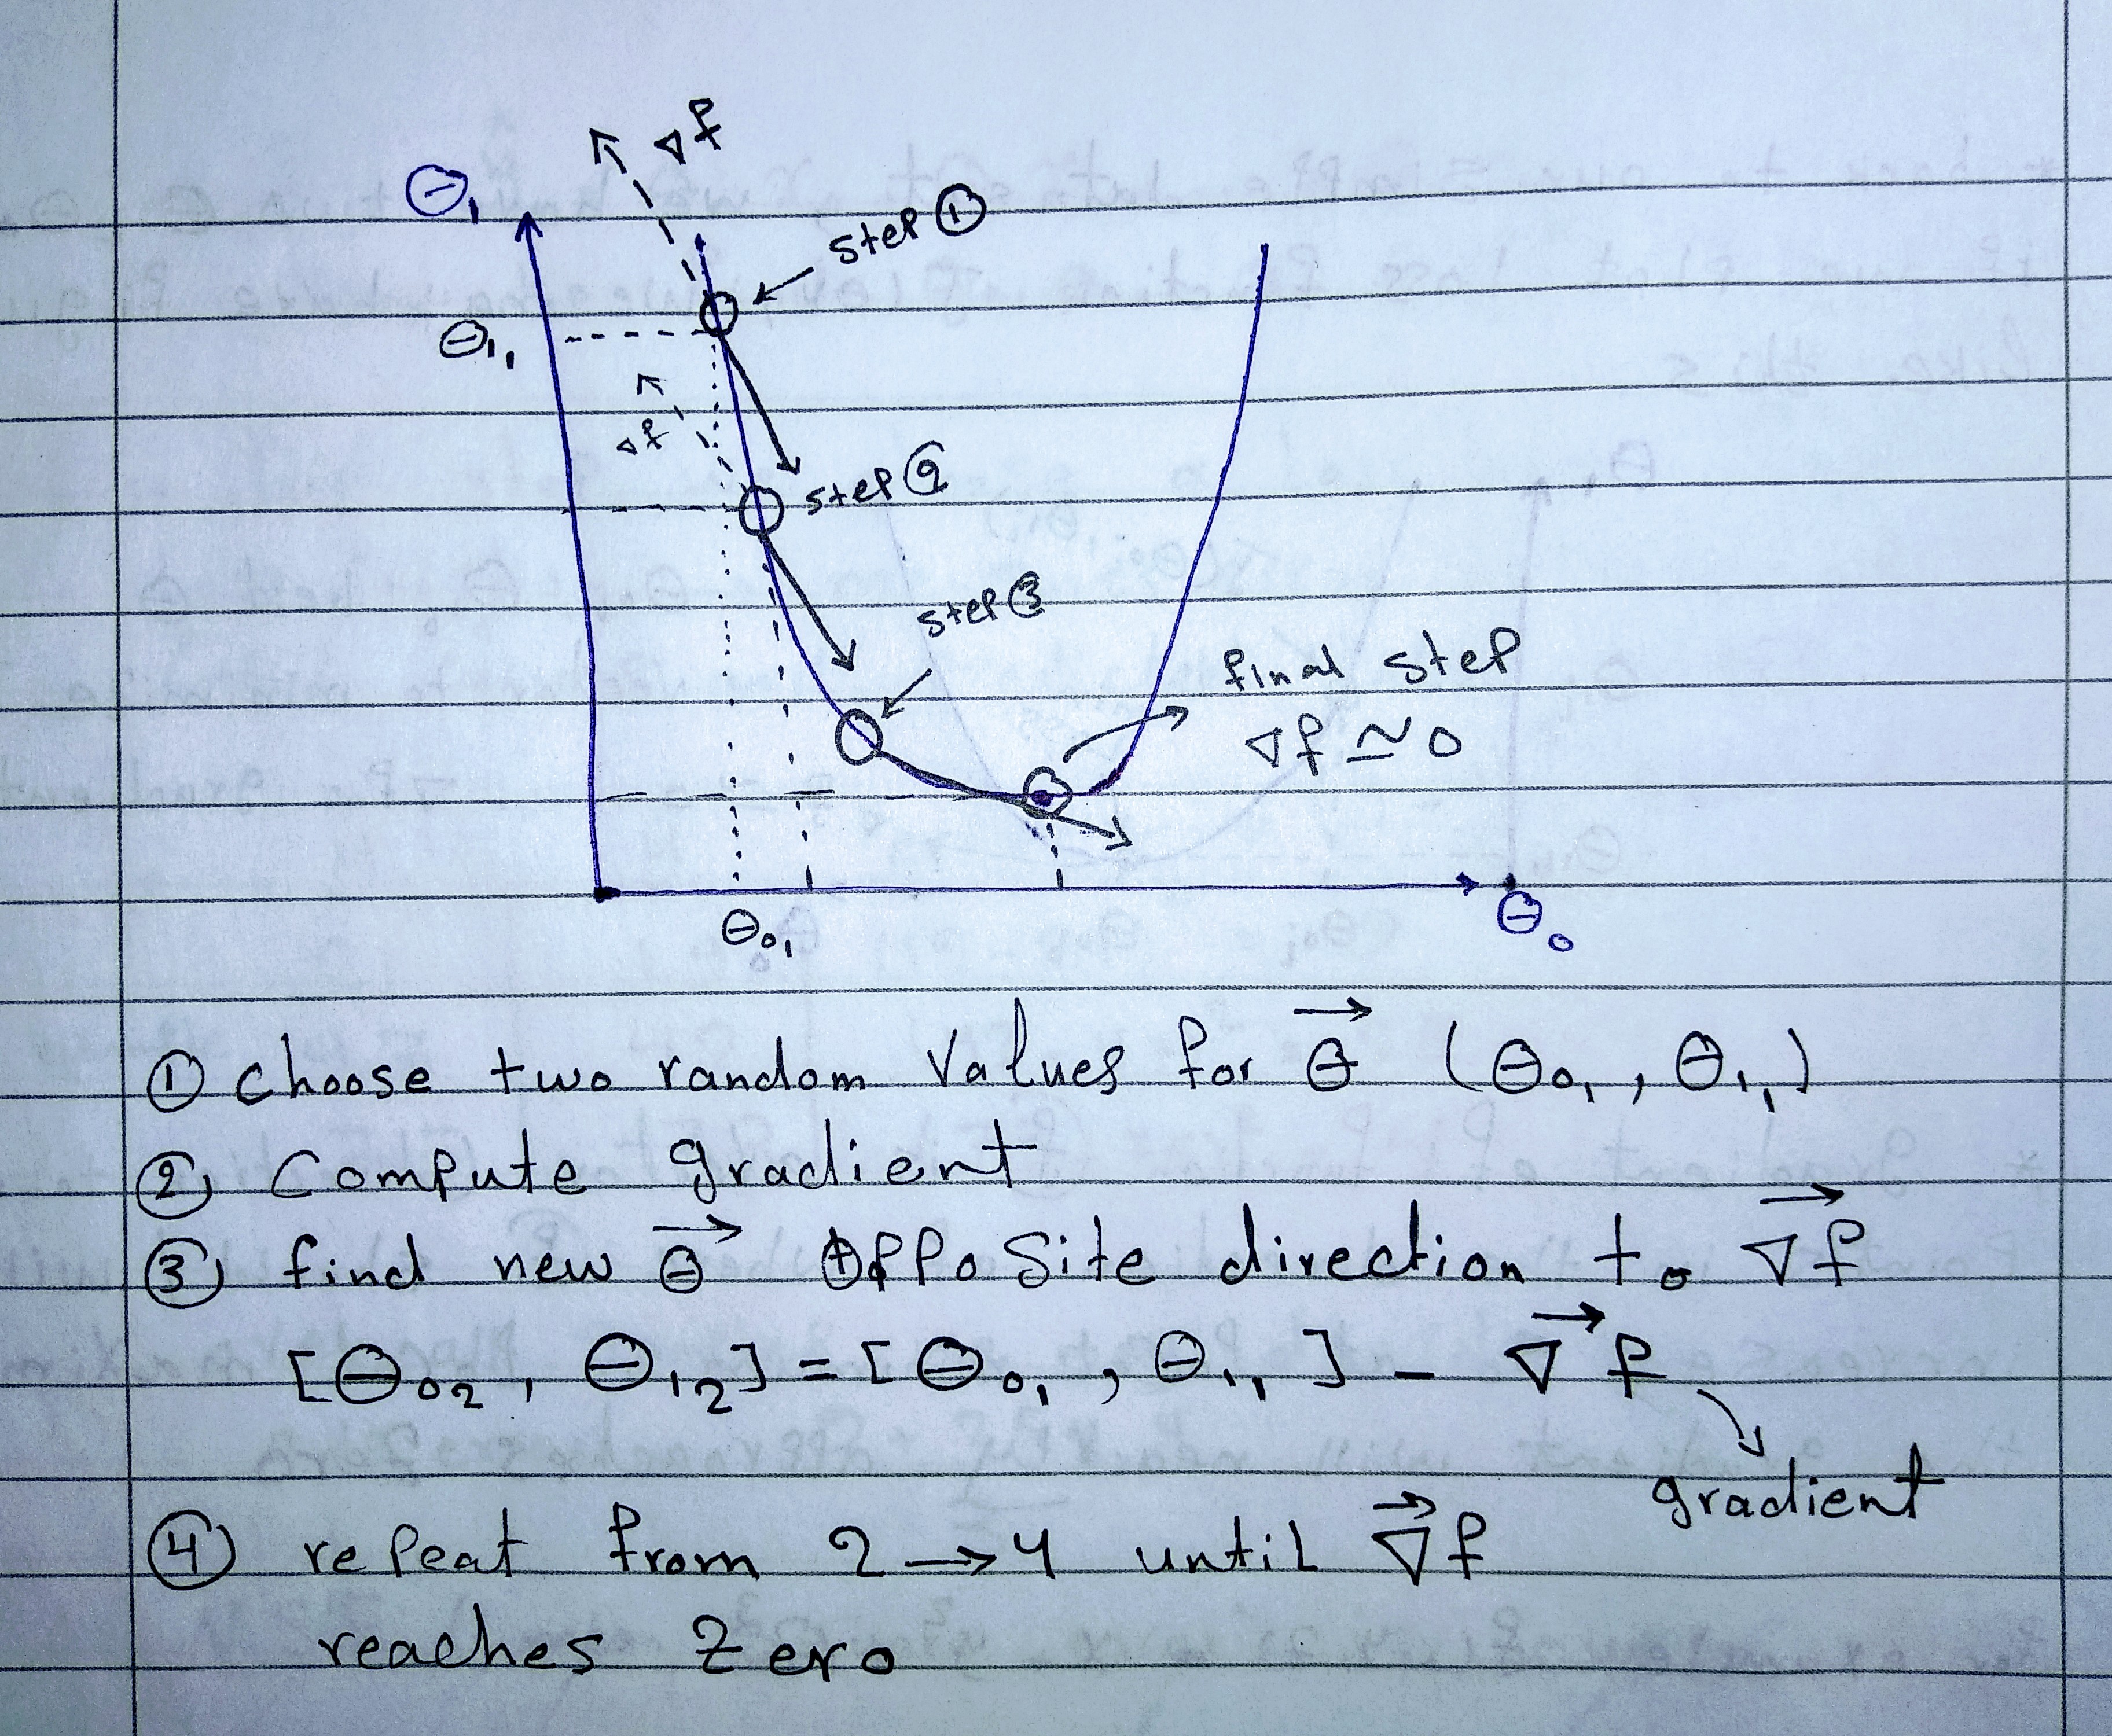 ∇f
Θ₁
step ①
Θ₁₁
∇f
step ②
step ③
final step
∇f ≃ 0
Θ₀₁
Θ₀
① choose two random values for Θ⃗ (Θ₀₁, Θ₁₁)
② Compute gradient
③ find new Θ⃗ opposite direction to ∇⃗f
[Θ₀₂, Θ₁₂] = [Θ₀₁, Θ₁₁] - ∇⃗f
gradient
④ repeat from 2 → 4 until ∇⃗f
reaches zero